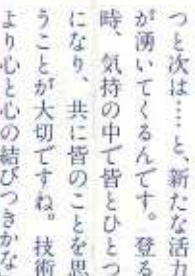 つと次は……と、新たな活力
が湧いてくるんです。登る
時、気持の中で皆とひとつ
になり、共に皆のことを思
うことが大切ですね。技術
より心と心の結びつきかな」